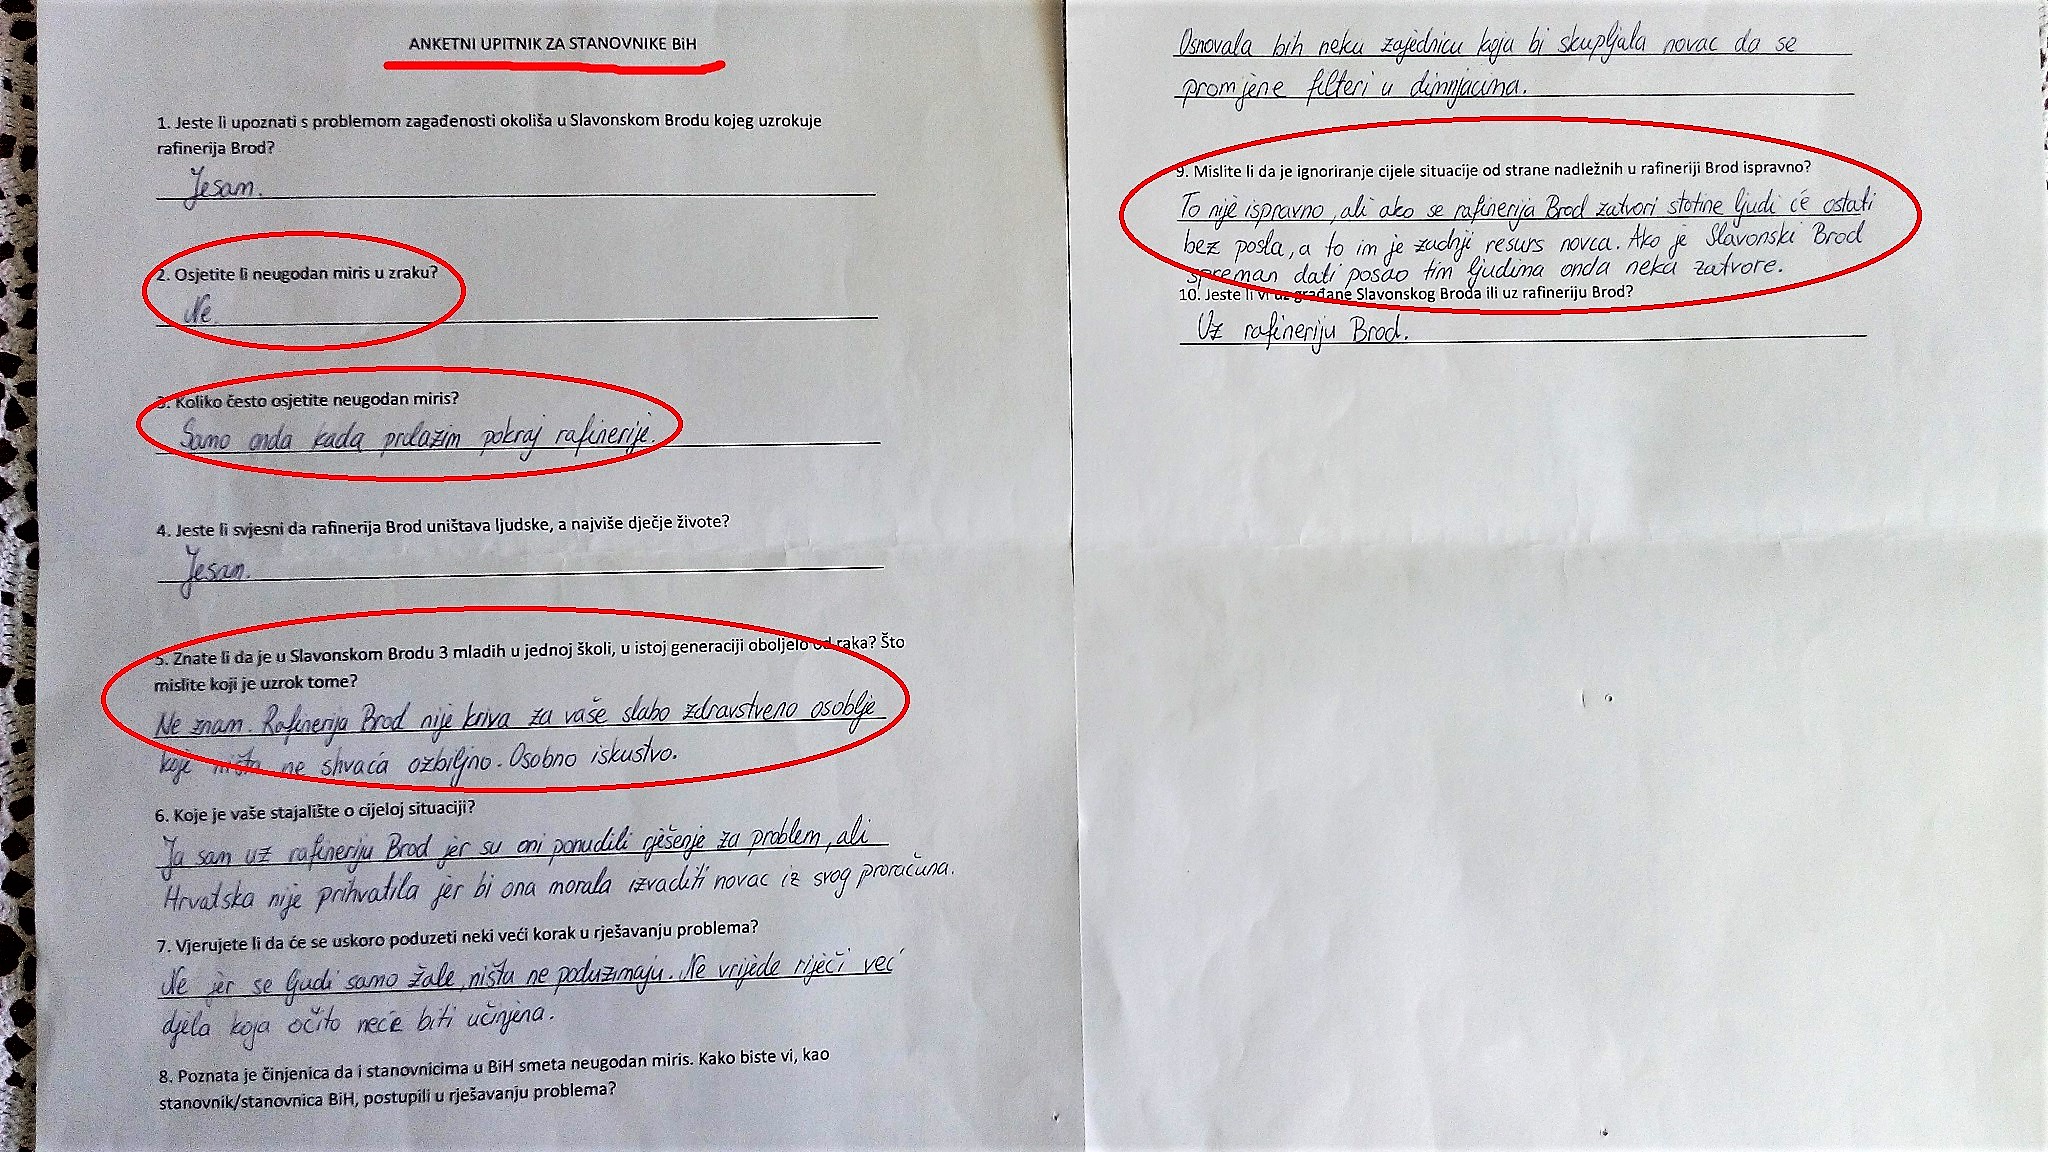 ANKETNI UPITNIK ZA STANOVNIKE BiH
1. Jeste li upoznati s problemom zagađenosti okoliša u Slavonskom Brodu kojeg uzrokuje
rafinerija Brod?
Jesam.
2. Osjetite li neugodan miris u zraku?
Ne.
3. Koliko često osjetite neugodan miris?
Samo onda kada prolazim pokraj rafinerije.
4. Jeste li svjesni da rafinerija Brod uništava ljudske, a najviše dječje živote?
Jesam.
5. Znate li da je u Slavonskom Brodu 3 mladih u jednoj školi, u istoj generaciji oboljelo od raka? Što
mislite koji je uzrok tome?
Ne znam. Rafinerija Brod nije kriva za vaše slabo zdravstveno osoblje
koje ništa ne shvaća ozbiljno. Osobno iskustvo.
6. Koje je vaše stajalište o cijeloj situaciji?
Ja sam uz rafineriju Brod jer su oni ponudili rješenje za problem, ali
Hrvatska nije prihvatila jer bi ona morala izvaditi novac iz svog proračuna.
7. Vjerujete li da će se uskoro poduzeti neki veći korak u rješavanju problema?
Ne jer se ljudi samo žale, ništa ne poduzimaju. Ne vrijede riječi već
djela koja očito neće biti učinjena.
8. Poznata je činjenica da i stanovnicima u BiH smeta neugodan miris. Kako biste vi, kao
stanovnik/stanovnica BiH, postupili u rješavanju problema?
Osnovala bih neku zajednicu koja bi skupljala novac da se
promjene filteri u dimnjacima.
9. Mislite li da je ignoriranje cijele situacije od strane nadležnih u rafineriji Brod ispravno?
To nije ispravno, ali ako se rafinerija Brod zatvori stotine ljudi će ostati
bez posla, a to im je zadnji resurs novca. Ako je Slavonski Brod
spreman dati posao tim ljudima onda neka zatvore.
10. Jeste li vi uz građane Slavonskog Broda ili uz rafineriju Brod?
Uz rafineriju Brod.